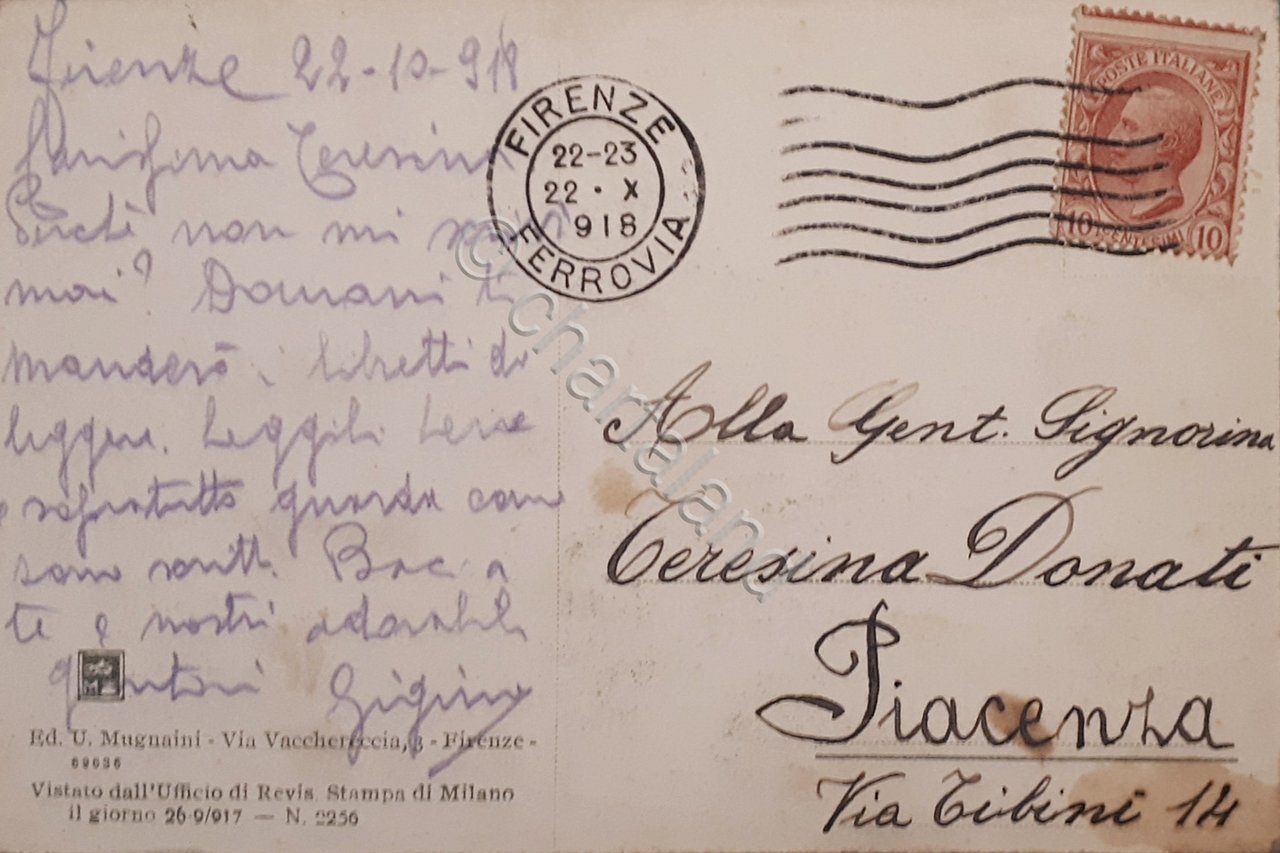 Firenze 22-10-918
Carissima Teresina
Perché non mi scrivi
mai? Domani ti
manderò i libretti da
leggere. Leggili bene
e soprattutto guarda come
sono scritti. Baci a
te e nostri adorabili
genitori Gigino
Ed. U. Mugnaini - Via Vacchereccia, 3 - Firenze -
69636
Vistato dall'Ufficio di Revis. Stampa di Milano
il giorno 26-9/917 — N. 2256
FIRENZE
22-23
22 · X
918
FERROVIA
POSTE ITALIANE
10 CENTESIMI 10
Alla Gent. Signorina
Teresina Donati
Piacenza
Via Tibini 14
© chartaland